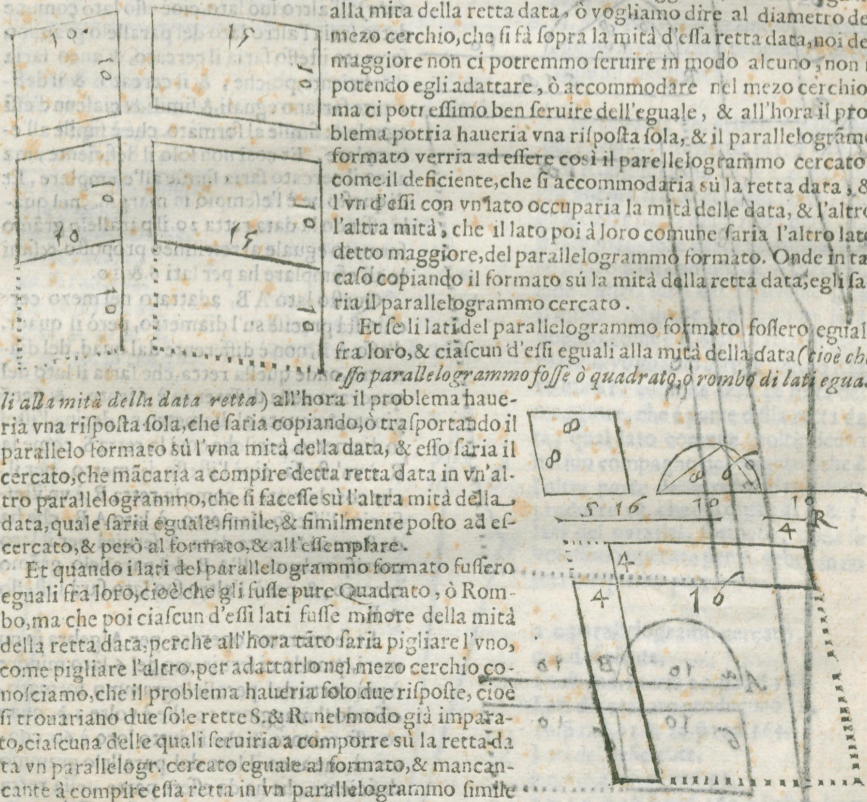 alla mità della retta data, ò vogliamo dire al diametro de
mezo cerchio, che si fà sopra la mità d'essa retta data, noi de
maggiore non ci potremmo seruire in modo alcuno, non
potendo egli adattare, ò accommodare nel mezo cerchio
ma ci potressimo ben seruire dell'eguale, & all'hora il pro
blema potria haueria vna risposta sola, & il parallelogrāmo
formato verria ad essere cosi il parellelogrammo cercato
come il deficiente, che si accommodaria sù la retta data, &
l'vn d'essi con vn lato occuparia la mità delle data, & l'altro
l'altra mità, che il lato poi à loro comune saria l'altro lato
detto maggiore, del parallelogrammo formato. Onde in ta
caso copiando il formato sú la mità della retta data, egli sa
ria il parallelogrammo cercato.
Et se li lati del parallelogrammo formato fossero egual
fra loro, & ciascun d'essi eguali alla mità della data (cioè ch
esso parallelogrammo fosse ò quadrato, ò rombo di lati egua
li alla mità della data retta) all'hora il problema haue-
ria vna risposta sola, che saria copiando, ò trasportando il
parallelo formato sù l'vna mità della data, & esso saria il
cercato, che mācaria a compire detta retta data in vn'al-
tro parallelogrammo, che si facesse sù l'altra mità della
data, quale saria eguale simile, & similmente posto ad es-
cercato, & però al formato, & all'essemplare.
Et quando i lati del parallelogrammo formato fussero
eguali fra loro, cioè che gli fusse pure Quadrato, ò Rom-
bo, ma che poi ciascun d'essi lati fusse minore della mità
della retta data, perche all'hora tāto saria pigliare l'vno,
come pigliare l'altro, per adattarlo nel mezo cerchio co-
nosciamo, che il problema haueria solo due risposte, cioè
si trouariano due sole rette S. & R. nel modo già impara-
to, ciascuna delle quali seruiria a comporre sù la retta da
ta vn parallelogr. cercato eguale al formato, & mancan-
cante à compire essa retta in vn parallelogrammo simile
10
15
10
10
10
10
15
10
10
10
8
8
8
6
5 16
10
10
4
R
4
4
16